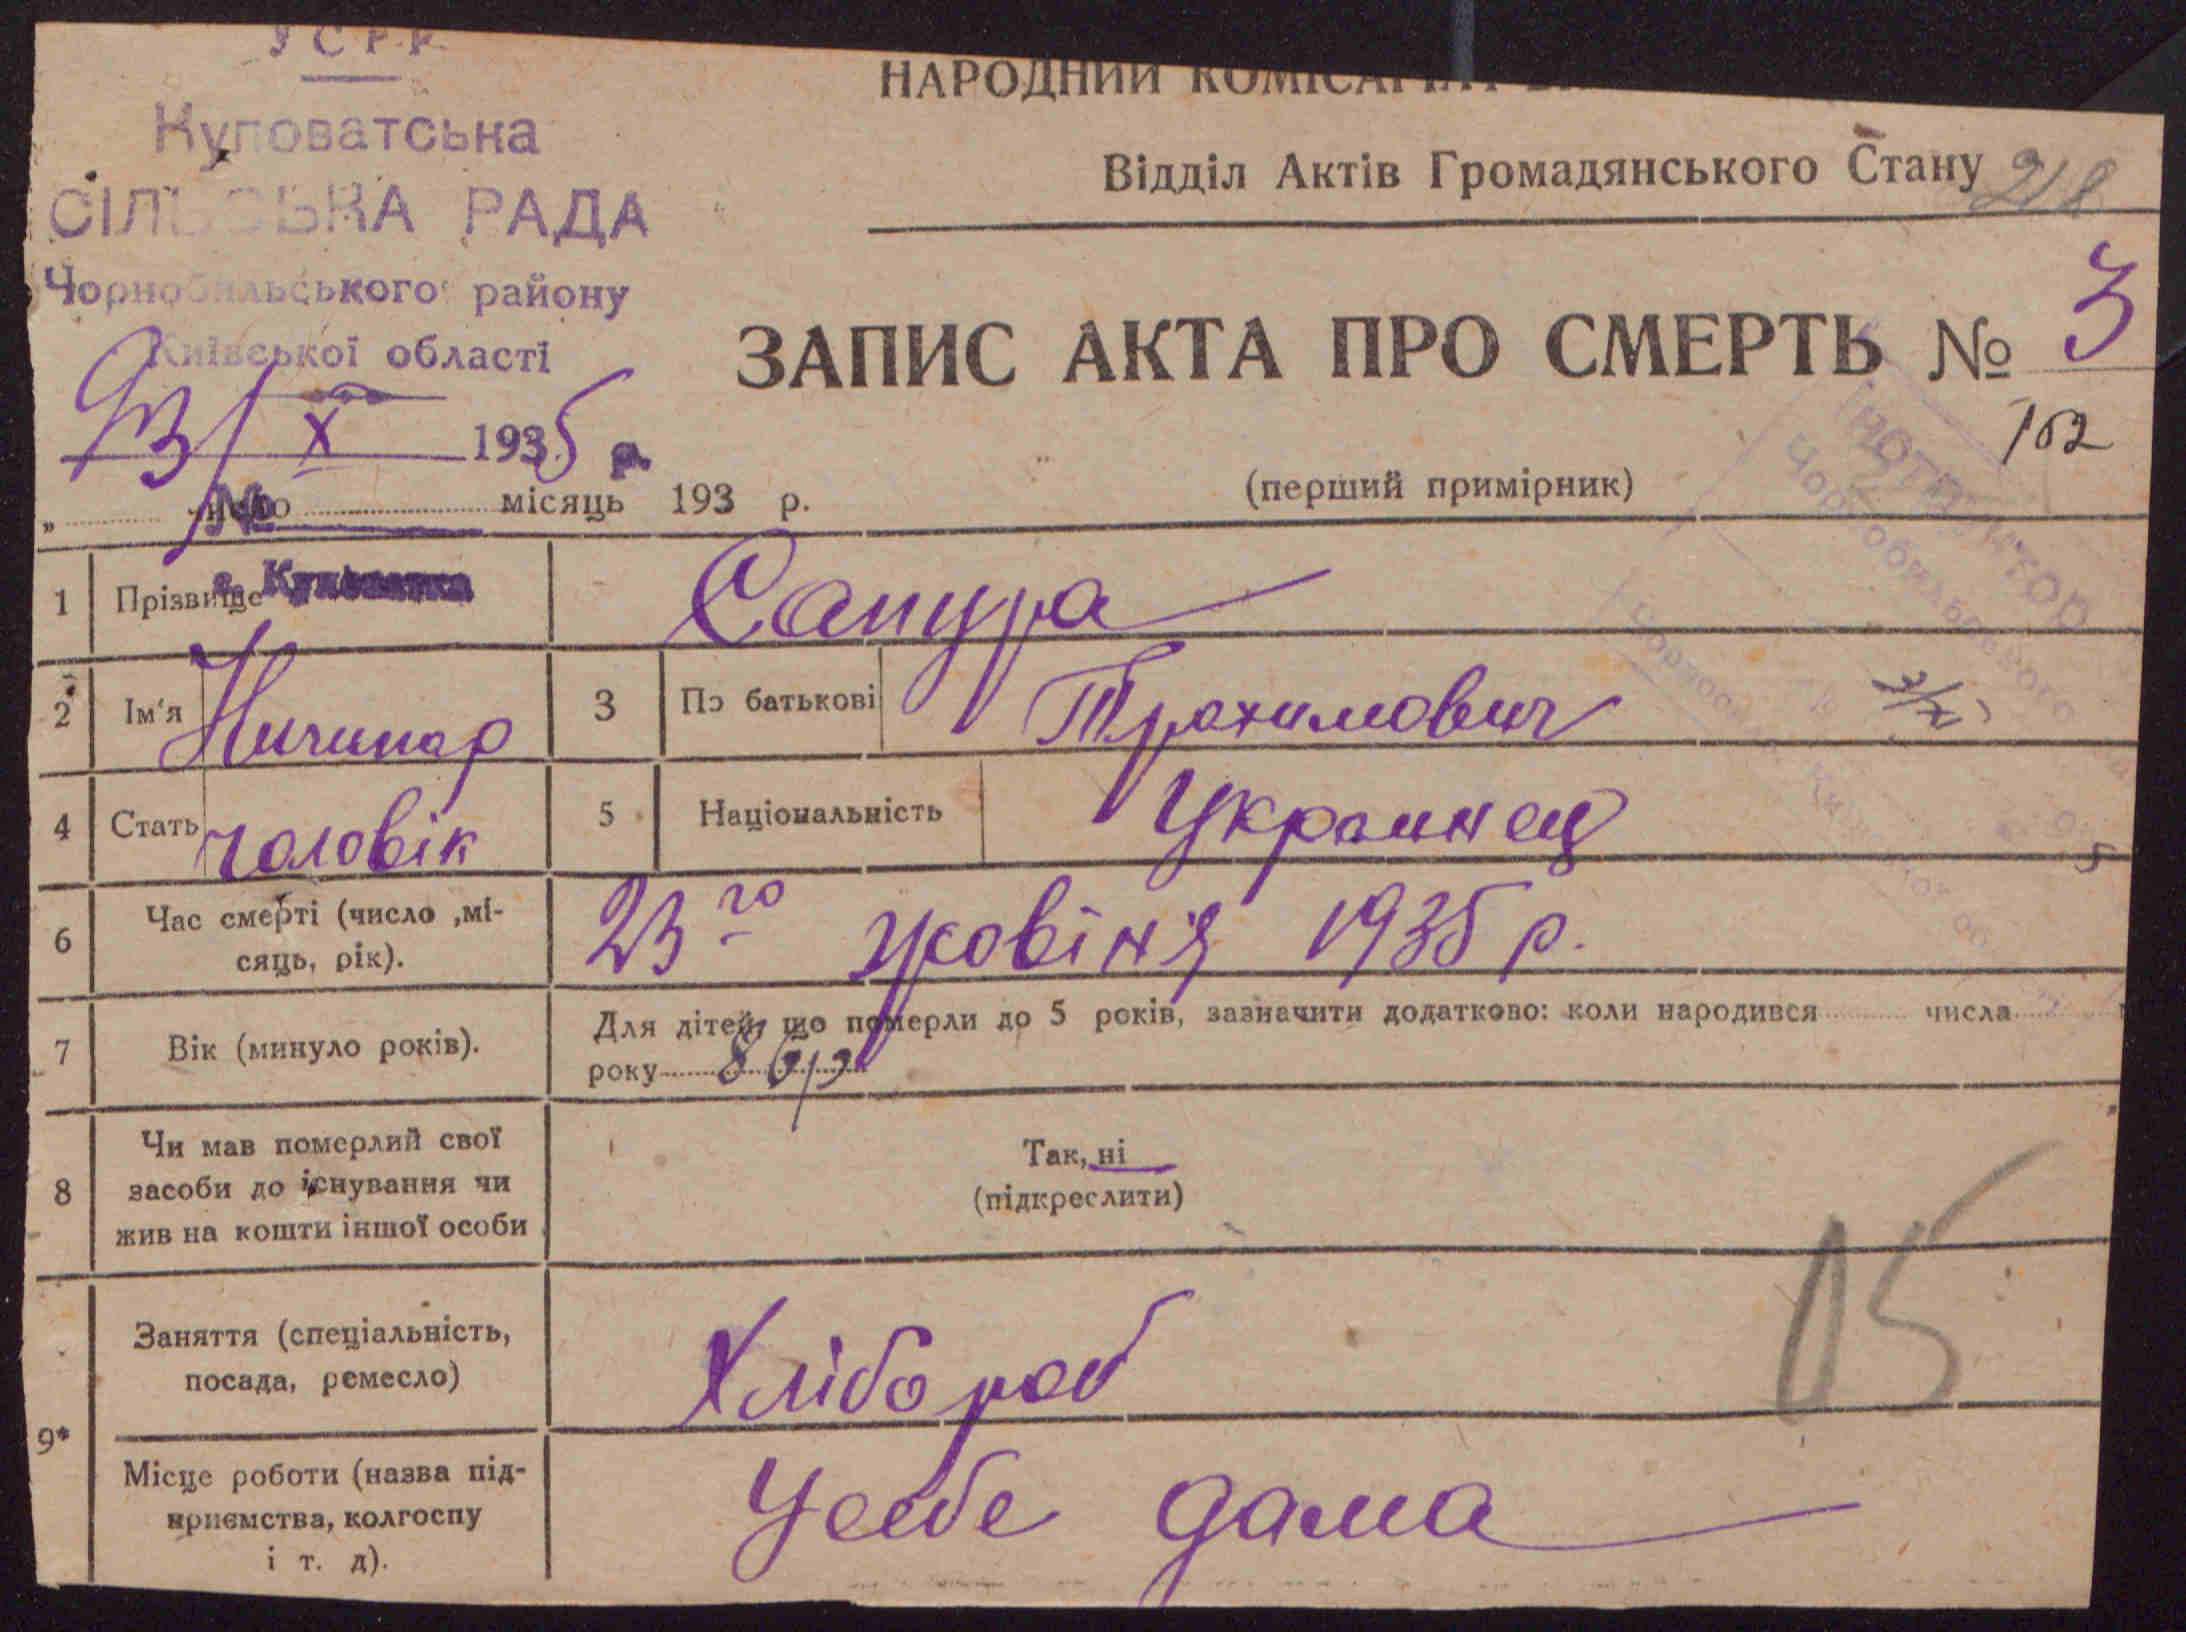 УСРР
Куповатська
СІЛЬСЬКА РАДА
Чорнобильського району
Київської області
23/X 1935 р.
№
с. Куповатка
НАРОДНИЙ КОМІСАРІЯТ
Відділ Актів Громадянського Стану 218
ЗАПИС АКТА ПРО СМЕРТЬ № 3
162
(перший примірник)
„ число місяць 193 р.
1 Прізвище Сапура
2 Ім'я Ничипар 3 По батькові Трахимович
4 Стать чоловік 5 Національність Украинец
6 Час смерті (число ,мі-
сяць, рік). 23го жовіня 1935 р.
7 Вік (минуло років). Для дітей, що померли до 5 років, зазначити додатково: коли народився числа
року 86 р
8 Чи мав померлий свої
засоби до існування чи
жив на кошти іншої особи
Так, ні
(підкреслити)
15
9* Заняття (спеціальність,
посада, ремесло) Хлібороб
Місце роботи (назва під-
приємства, колгоспу
і т. д). Усебе дома